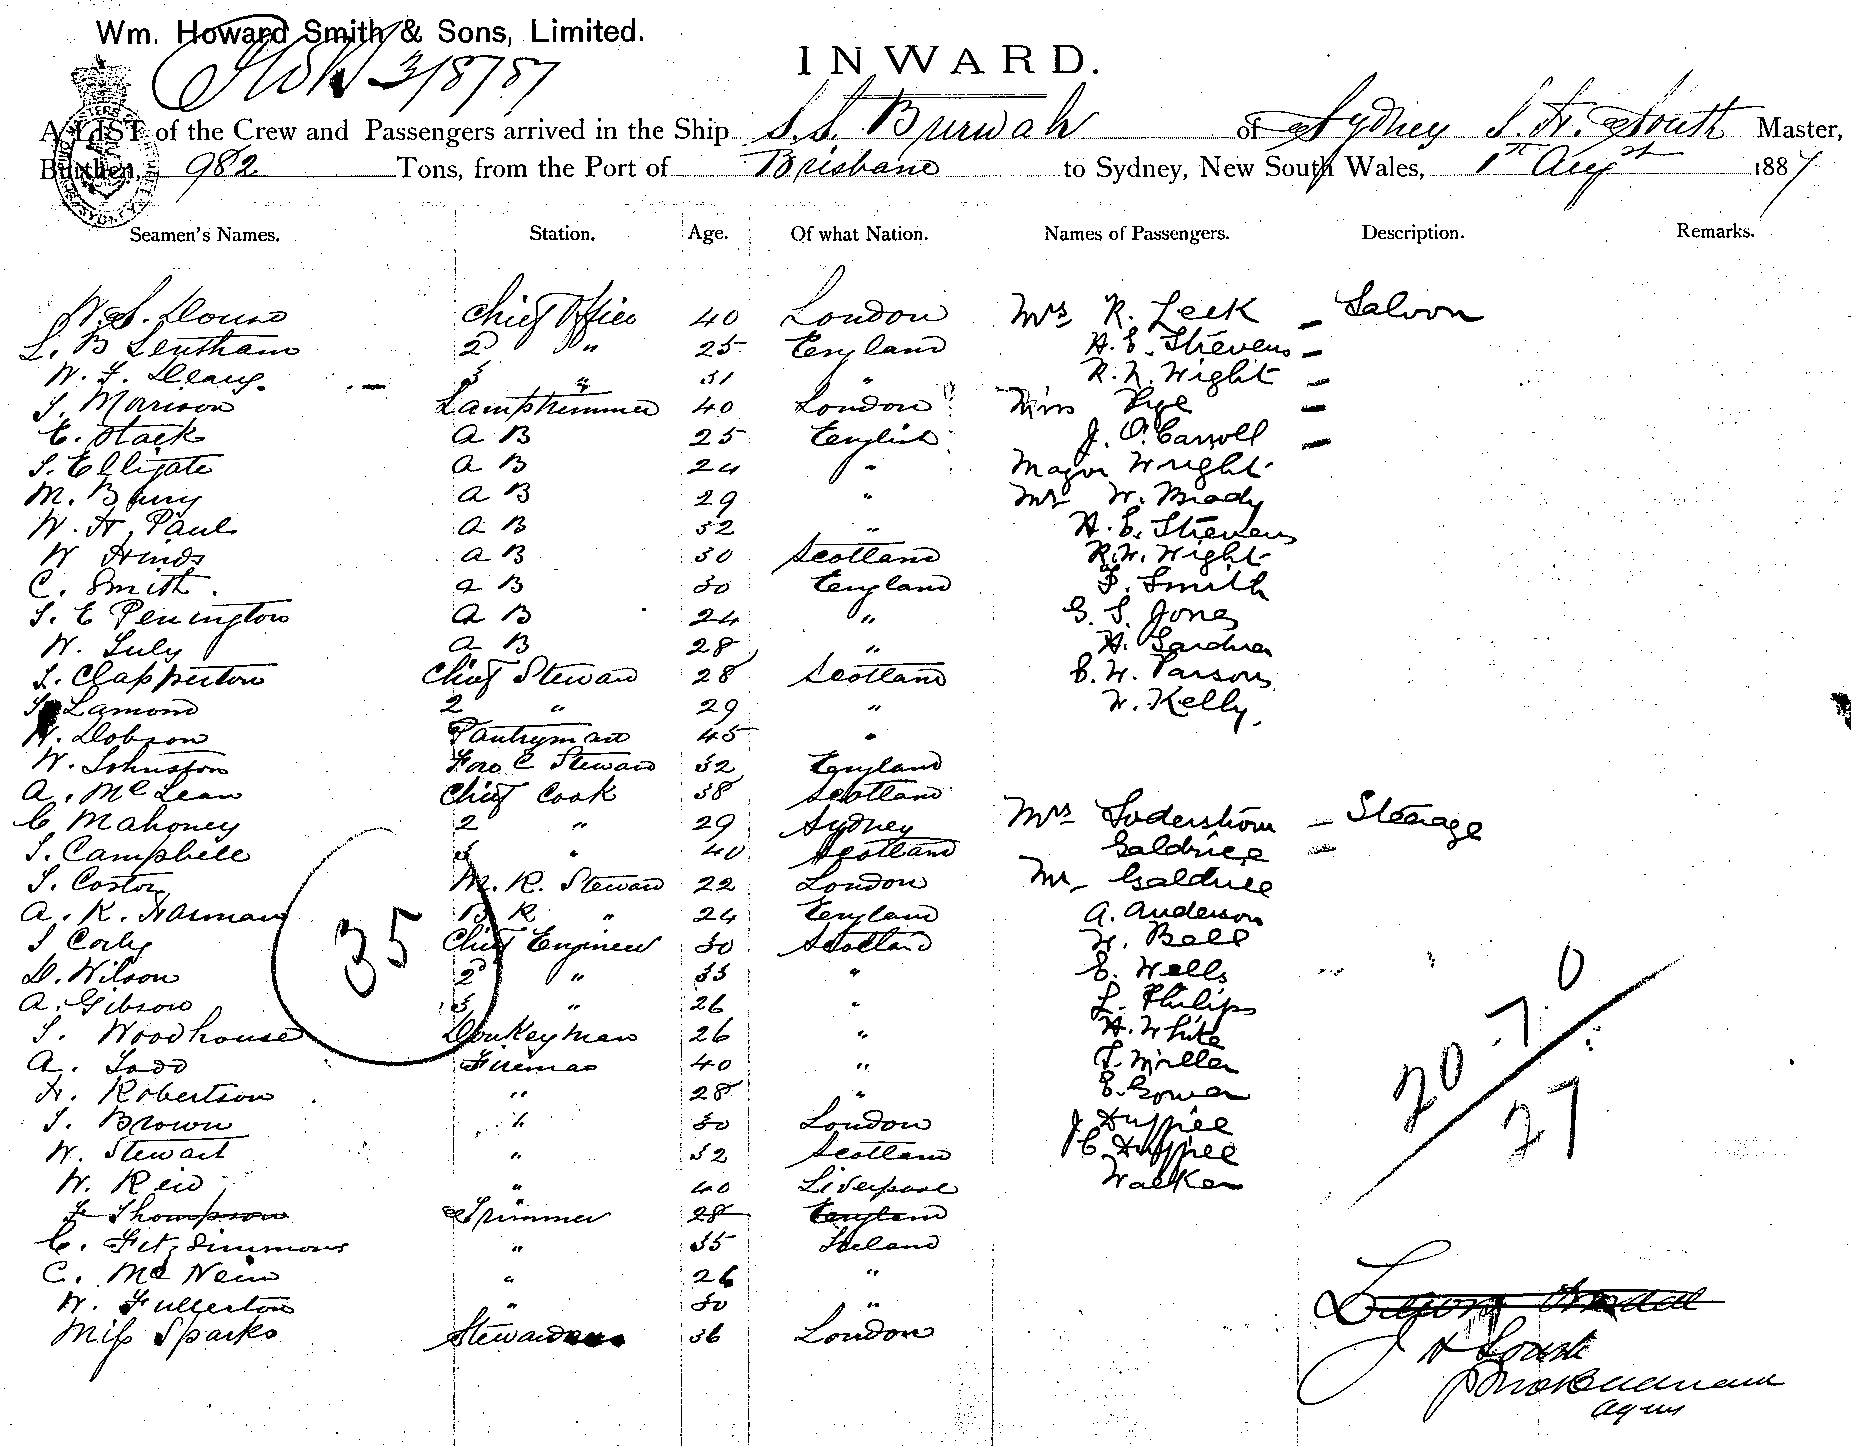 Wm. Howard Smith & Sons, Limited.
3/8/87
INWARD.
A LIST of the Crew and Passengers arrived in the Ship S.S. Burwah of Sydney J. H. South Master,
Burthen, 982 Tons, from the Port of Brisbane to Sydney, New South Wales, 1st Augst 1887
Seamen's Names. Station. Age. Of what Nation. Names of Passengers. Description. Remarks.
Chief Officer 40 London Mrs R. Leek - Saloon
L. B Lentham 2d " 25 England H. E. Stevens -
3 " 31 " R. N. Wight -
J. Morrison Lamptrimmer 40 London Miss Pye -
E. Stack A B 25 English J. O'Carroll -
J. Elligate A B 24 " Major Wright
M. Barry A B 29 " Mr W. Brady
W. H. Paul A B 32 " H. E. Stevens
W Hinds A B 30 Scotland R. N. Wight
C. Smith. A B 30 England F. Smith
J. E Penington A B 24 " G. S. Jones
W. July A B 28 " H. Gardner
J. Clapperton Chief Steward 28 Scotland E. W. Parsons
Lamond 2 " 29 " W. Kelly.
W. Dobson Pantryman 45 "
W. Johnston Fore C Steward 32 England
A. McLean Chief Cook 38 Scotland
C Mahoney 2 " 29 Sydney Mrs Soderstrom - Steerage
J. Campbell 3 " 40 Scotland Galdrice "
J. Costor M. R. Steward 22 London Mr Galdrice
A. R. Harman B R " 24 England A. Anderson
J Corly Chief Engineer 30 Scotland W. Bell
D. Wilson 2d " 33 " E. Wells
A. Gibson 3 " 26 " L. Philips
J. Woodhouse Donkeyman 26 " H. White
A. Todd Fireman 40 " T. Miller
H. Robertson " 28 " E. Gower
J. Brown " 30 London J Duffiee
W. Stewart " 32 Scotland C. Duffiee
W. Reid " 40 Liverpool Walker
F Thompson Trimmer 28 England
C. Fitzsimmons " 35 Ireland
C. McNein " 26 "
W. Fullerton " 30 "
Miss Sparks Stewardess 36 London
35
20 7 0
27
J H South
Agents